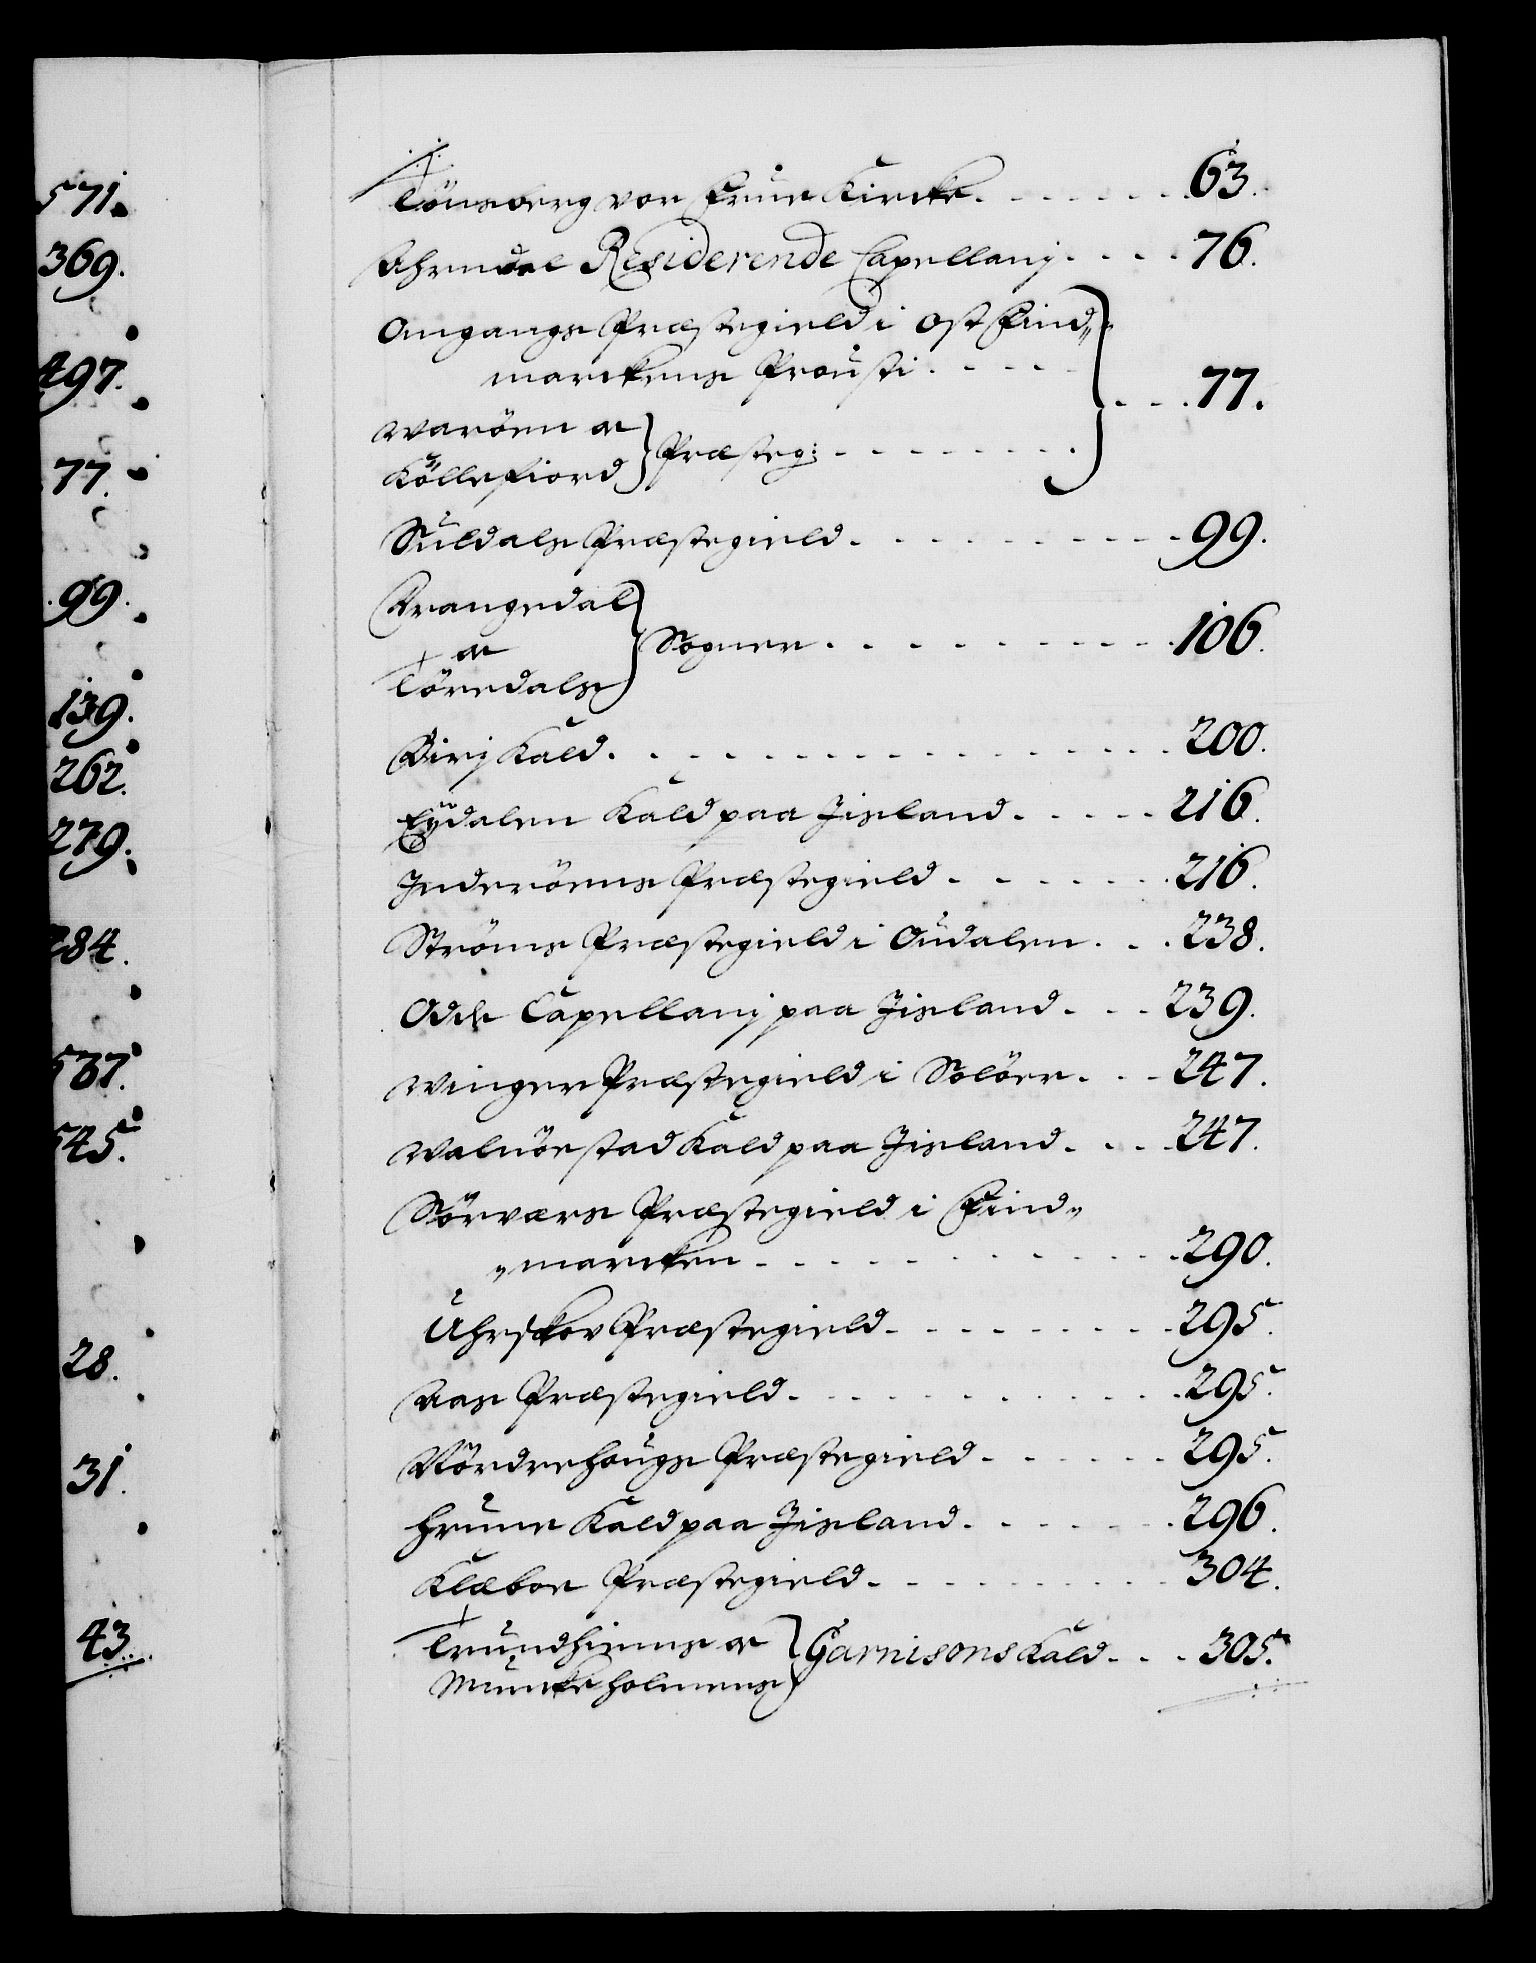 571.
369.
497.
77.
99.
139.
262.
279.
284.
537.
545.
28.
31.
43.
Tönsberg vor Frue Kircke. . . . . . . 63.
Ahrendal Residerende Capellanj. . . . 76.
Omgangs Præstegield i Ost Find„
marckens Prousti. . . . . 77.
Waröen og
Köllefiord } Præsteg: . . . . . . . .
Suldals Præstegield. . . . . . . . . 99.
Drangedal
og } Sogner. . . . . . . . . 106.
Töredals
Birj Kald. . . . . . . . . . . . . . 200.
Eÿdalen Kald paa Jisland. . . . . 216.
Inderöens Præstegield. . . . . . . 216.
Ströms Præstegield i Oudalen. . . 238.
Odde Capellanj paa Jisland. . . . 239.
Winger Præstegield i Solöer. . . . 247.
Walnöestad Kald paa Jisland. . . . 247.
Sörværs Præstegield i Find„
„marcken. . . . . . . . . . . 290.
Uhrskov Præstegield. . . . . . . . 295.
Aas Præstegield. . . . . . . . . . 295.
Nördrehougs Præstegield. . . . . . 295.
Hrune Kald paa Jisland. . . . . . . 296.
Klæboe Præstegield. . . . . . . . . 304.
Trundhiems og
Munckeholmens } Garnisons Kald. . . . 305.